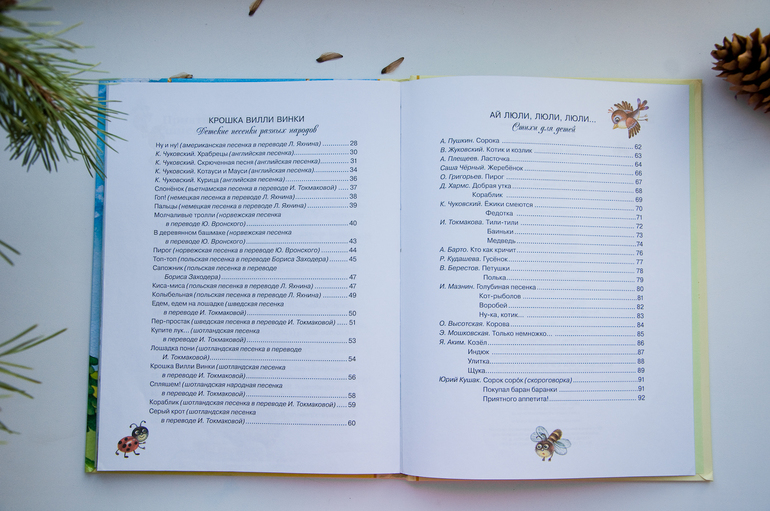 КРОШКА ВИЛЛИ ВИНКИ
Детские песенки разных народов
Ну и ну! (американская песенка в переводе Л. Яхнина) 28
К. Чуковский. Храбрецы (английская песенка) 30
К. Чуковский. Скрюченная песня (английская песенка) 31
К. Чуковский. Котауси и Мауси (английская песенка) 34
К. Чуковский. Курица (английская песенка) 36
Слонёнок (вьетнамская песенка в переводе И. Токмаковой) 37
Гоп! (немецкая песенка в переводе Л. Яхнина) 38
Пальцы (немецкая песенка в переводе Л. Яхнина) 39
Молчаливые тролли (норвежская песенка
в переводе Ю. Вронского) 40
В деревянном башмаке (норвежская песенка
в переводе Ю. Вронского) 43
Пирог (норвежская песенка в переводе Ю. Вронского) 44
Топ-топ (польская песенка в переводе Бориса Заходера) 45
Сапожник (польская песенка в переводе
Бориса Заходера) 47
Киса-миса (польская песенка в переводе Л. Яхнина) 47
Колыбельная (польская песенка в переводе Л. Яхнина) 49
Едем, едем на лошадке (шведская песенка
в переводе И. Токмаковой) 50
Пер-простак (шведская песенка в переводе И. Токмаковой) 51
Купите лук... (шотландская песенка
в переводе И. Токмаковой) 53
Лошадка пони (шотландская песенка в переводе
И. Токмаковой) 54
Крошка Вилли Винки (шотландская песенка
в переводе И. Токмаковой) 56
Спляшем! (шотландская народная песенка
в переводе И. Токмаковой) 58
Кораблик (шотландская песенка в переводе И. Токмаковой) 59
Серый крот (шотландская песенка
в переводе И. Токмаковой) 60
АЙ ЛЮЛИ, ЛЮЛИ, ЛЮЛИ...
Стихи для детей
А. Пушкин. Сорока 62
В. Жуковский. Котик и козлик 62
А. Плещеев. Ласточка 63
Саша Чёрный. Жеребёнок 64
О. Григорьев. Пирог 66
Д. Хармс. Добрая утка 67
Кораблик 68
К. Чуковский. Ёжики смеются 69
Федотка 70
И. Токмакова. Тили-тили 71
Баиньки 72
Медведь 73
А. Барто. Кто как кричит 74
Р. Кудашева. Гусёнок 76
В. Берестов. Петушки 77
Полька 78
И. Мазнин. Голубиная песенка 79
Кот-рыболов 80
Воробей 81
Ну-ка, котик... 82
О. Высотская. Корова 83
Э. Мошковская. Только немножко... 84
Я. Аким. Козёл 85
Индюк 86
Улитка 87
Щука 88
Юрий Кушак. Сорок сорок (скороговорка) 89
Покупал баран баранки 91
Приятного аппетита! 91
92